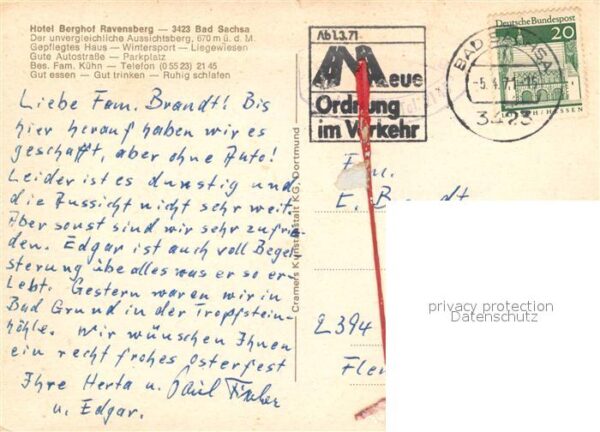 Hotel Berghof Ravensberg — 3423 Bad Sachsa
Der unvergleichliche Aussichtsberg, 670 m ü. d. M.
Gepflegtes Haus — Wintersport — Liegewiesen
Gute Autostraße — Parkplatz
Bes. Fam. Kühn — Telefon (0 55 23) 21 45
Gut essen — Gut trinken — Ruhig schlafen
Liebe Fam. Brandt! Bis
hier herauf haben wir es
geschafft, aber ohne Auto!
Leider ist es dunstig und
die Aussicht nicht sehr weit.
Aber sonst sind wir sehr zufrie-
den. Edgar ist auch voll Begei-
sterung über alles was er so er-
lebt. Gestern waren wir in
Bad Grund in der Tropfstein-
höhle. Wir wünschen Ihnen
ein recht frohes Osterfest
Ihre Herta u. Paul
u. Edgar.
Cramers Kunstanstalt KG, Dortmund
Ab 1.3.71
Neue
Ordnung
im Verkehr
BAD SACHSA
-5.4.71-15
3423
Deutsche Bundespost
20
LORSCH/HESSEN
Fam.
E. Brandt
2394
privacy protection
Datenschutz